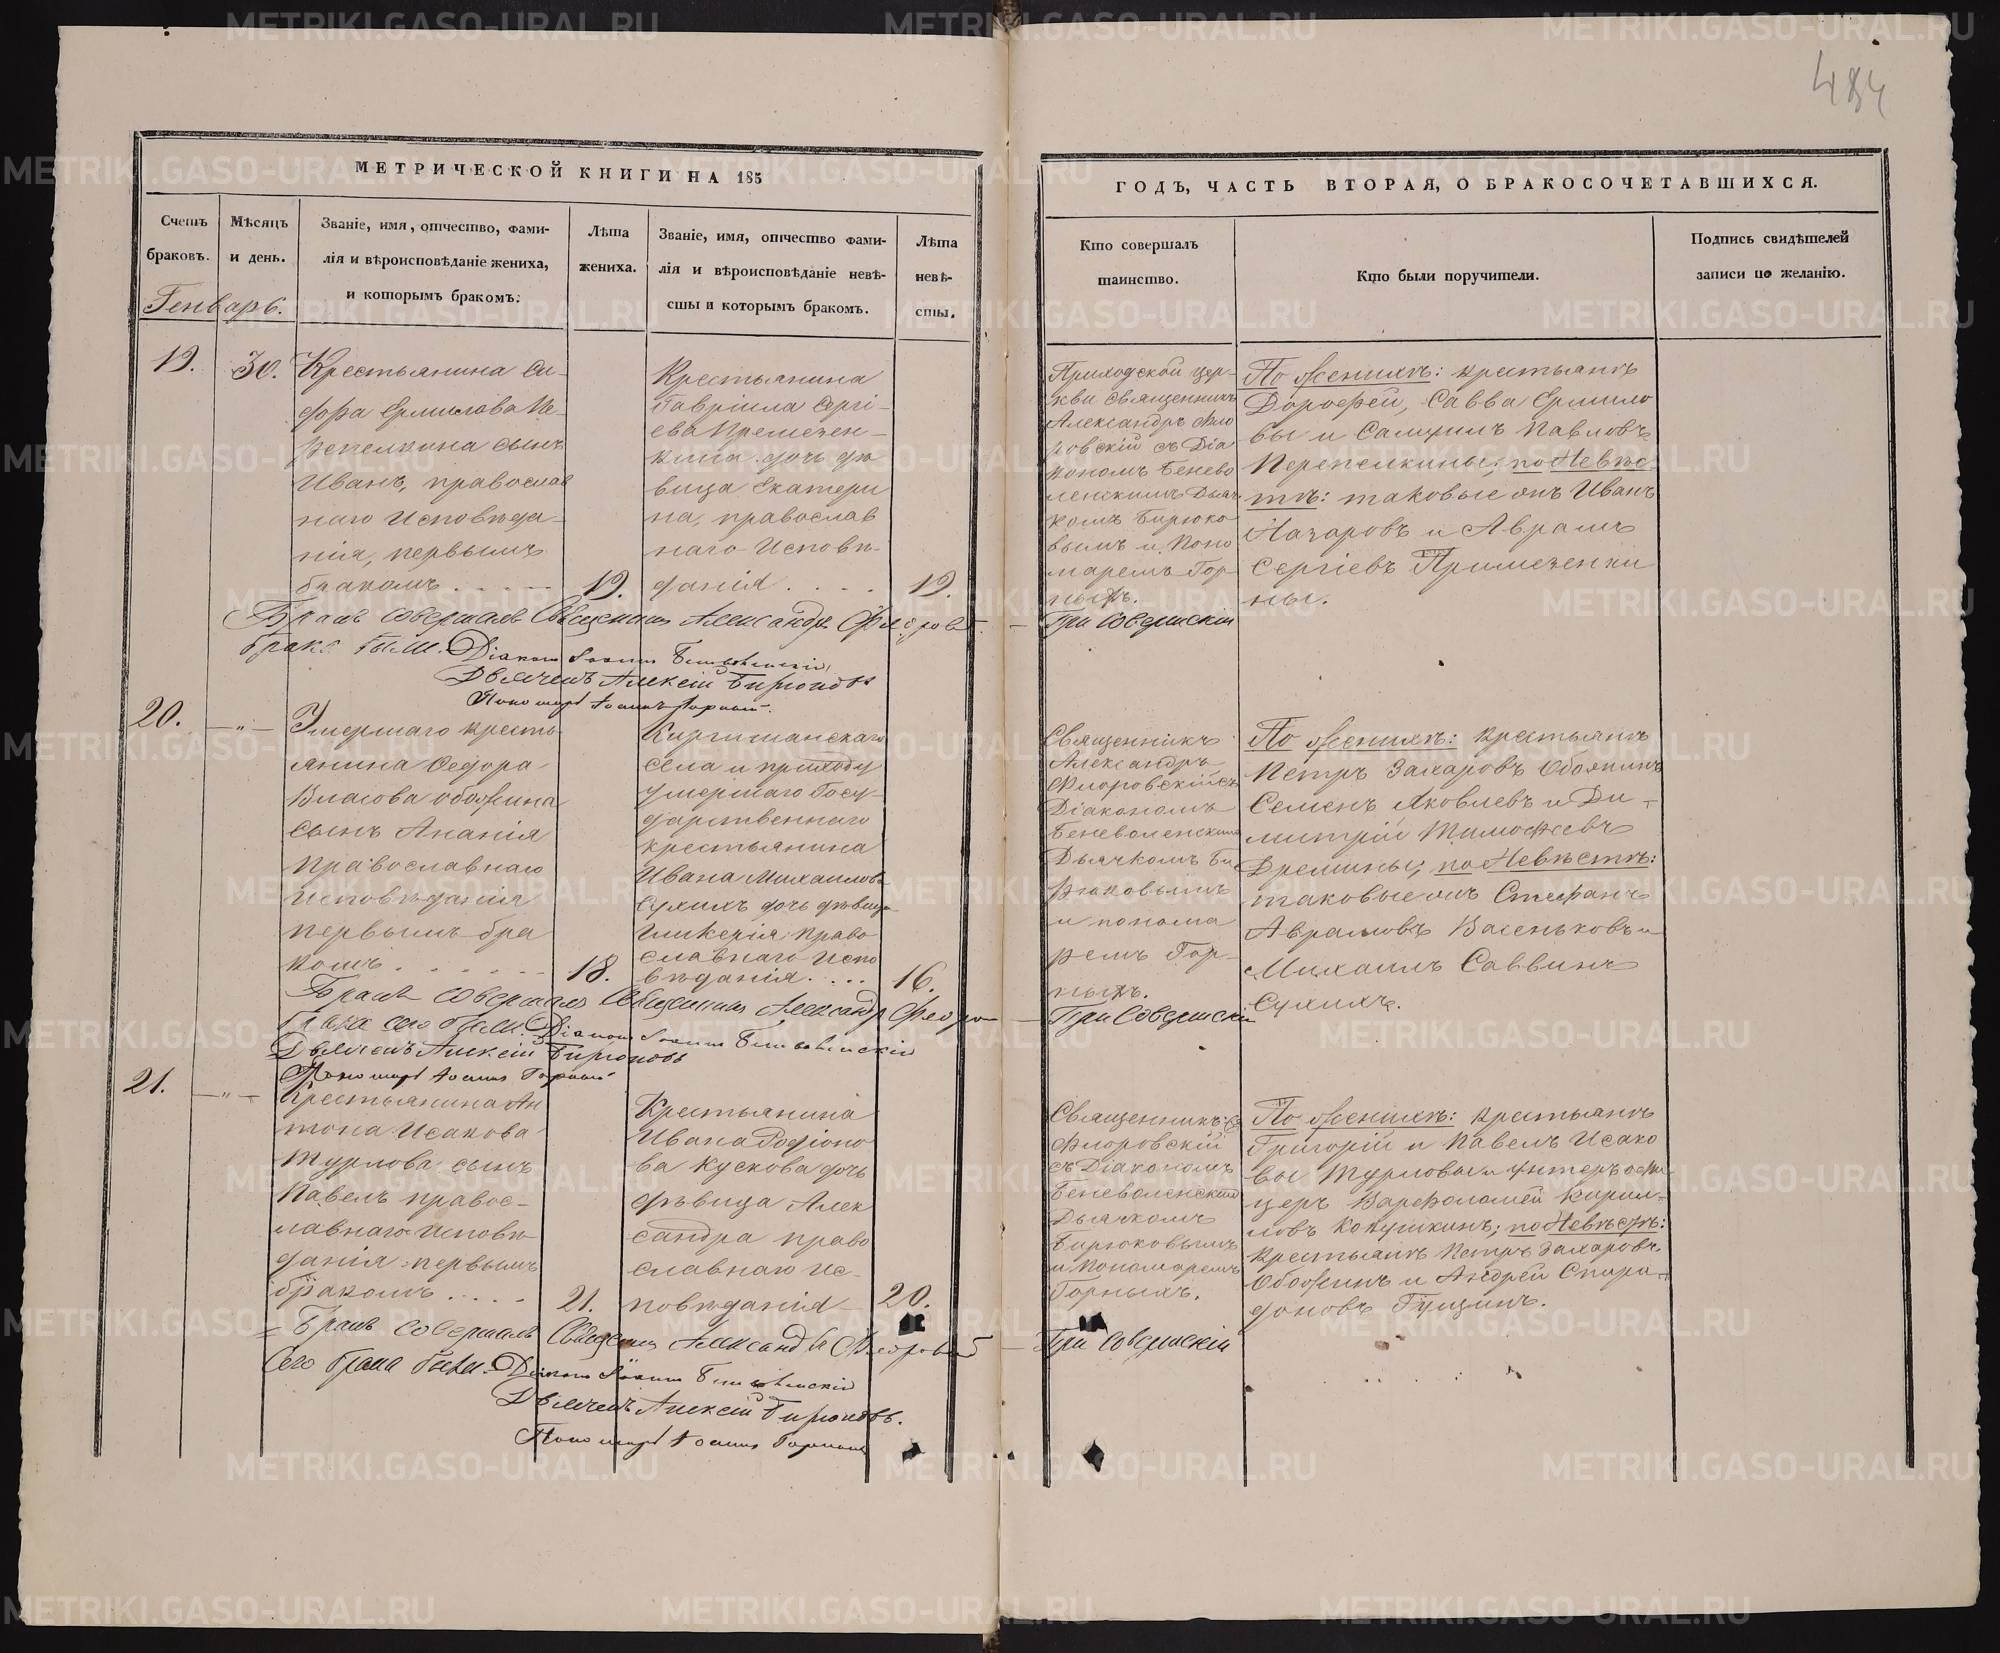 484
МЕТРИЧЕСКОЙ КНИГИ НА 185
ГОДЪ, ЧАСТЬ ВТОРАЯ, О БРАКОСОЧЕТАВШИХСЯ.
Счетъ браковъ.
Мѣсяцъ и день.
Званіе, имя, отчество, фами-
лія и вѣроисповѣданіе жениха,
и которымъ бракомъ.
Лѣта
жениха.
Званіе, имя, отчество фами-
лія и вѣроисповѣданіе невѣ-
сты и которымъ бракомъ.
Лѣта
невѣ-
сты.
Кто совершалъ
таинство.
Кто были поручители.
Подпись свидѣтелей
записи по желанію.
Генварь.
19.
30.
Крестьянина Си-
фофа Ермилова Пе-
репелкина сынъ
Иванъ, православ
наго исповѣда-
нія, первымъ
бракомъ
19.
Крестьянина
Гавріила Сергі-
ева
дочь дѣ
вица Екатери
на, православ
наго исповѣ-
данія
19.
Приходской цер-
кви Священникъ
Александръ Фло
ровскій съ Діа
кономъ Бенево
ленскимъ Дьяч
комъ Бирюко
вымъ и Поно
маремъ Гор-
нымъ.
По женихѣ: крестьянъ
Дорофей, Савва Ермило
вы и Самуилъ Павловъ
Перепелкины; по Невѣс
тѣ: таковые же Иванъ
Назаровъ и Аврамъ
Сергіевъ
ны.
Бракъ совершалъ Священникъ Александръ Флоров. — При совершеніи
брака были: Діаконъ Іоаннъ Беневоленскій
Дьячекъ Алексій Бирюковъ
Пономарь Іоаннъ Горный.
20.
— „ —
Умершаго кресть
янина Ѳедора
Власова Обожина
сынъ Ананія
православнаго
исповѣданія
первымъ бра
комъ
18.
Киргишанскаго
села и приходу
умершаго Госу-
дарственнаго
крестьянина
Ивана Михаилова
Сухихъ дочь дѣвица
Гликерія право
славнаго испо
вѣданія
16.
Священникъ
Александръ
Флоровскій съ
Діакономъ
Беневоленскимъ
Дьячкомъ Би
рюковымъ
и понома
ремъ Гор-
нымъ.
По женихѣ: крестьянъ
Петръ Захаровъ Обожинъ
Семенъ Яковлевъ и Ди-
митрій Тимофеевъ
Дремины; по Невѣстѣ:
таковые же Стефанъ
Аврамовъ Васеньковъ и
Михаилъ Саввинъ
Сухихъ.
Бракъ совершалъ Священникъ Александръ Флоро — При совершеніи
брака сего были: Діаконъ Іоаннъ Беневоленскій
Дьячекъ Алексій Бирюковъ
Пономарь Іоаннъ Горный
21.
— „ —
Крестьянина Ан
тона Исакова
Турлова сынъ
Павелъ правос-
лавнаго исповѣ
данія первымъ
бракомъ
21.
Крестьянина
Ивана Родіоно
ва Кускова дочь
дѣвица Алек
сандра право
славнаго ис-
повѣданія
20.
Священникъ
Флоровскій
съ Діакономъ
Беневоленскимъ
Дьячкомъ
Бирюковымъ
и Пономаремъ
Горныхъ.
По женихѣ: крестьянъ
Григорій и Павелъ Исако
вы Турловы и унтеръ офи
церъ Варфоломей Кирил-
ловъ Кокушкинъ; по Невѣстѣ:
крестьянъ Петръ Захаровъ
Обожинъ и Андрей Спири-
доновъ Гущинъ.
Бракъ совершалъ Священникъ Александръ Флоровскій — При совершеніи
сего брака были: Діаконъ Іоаннъ Беневоленскій
Дьячекъ Алексій Бирюковъ.
Пономарь Іоаннъ Горный
METRIKI.GASO-URAL.RU